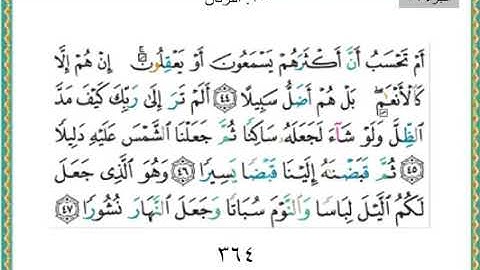 أَمْ تَحْسَبُ أَنَّ أَكْثَرَهُمْ يَسْمَعُونَ أَوْ يَعْقِلُونَ ۚ إِنْ هُمْ إِلَّا
كَالْأَنْعَـٰمِ ۖ بَلْ هُمْ أَضَلُّ سَبِيلًا ٤٤ أَلَمْ تَرَ إِلَىٰ رَبِّكَ كَيْفَ مَدَّ
ٱلظِّلَّ وَلَوْ شَآءَ لَجَعَلَهُۥ سَاكِنًا ثُمَّ جَعَلْنَا ٱلشَّمْسَ عَلَيْهِ دَلِيلًا
٤٥ ثُمَّ قَبَضْنَـٰهُ إِلَيْنَا قَبْضًا يَسِيرًا ٤٦ وَهُوَ ٱلَّذِى جَعَلَ
لَكُمُ ٱلَّيْلَ لِبَاسًا وَٱلنَّوْمَ سُبَاتًا وَجَعَلَ ٱلنَّهَارَ نُشُورًا ٤٧
٣٦٤